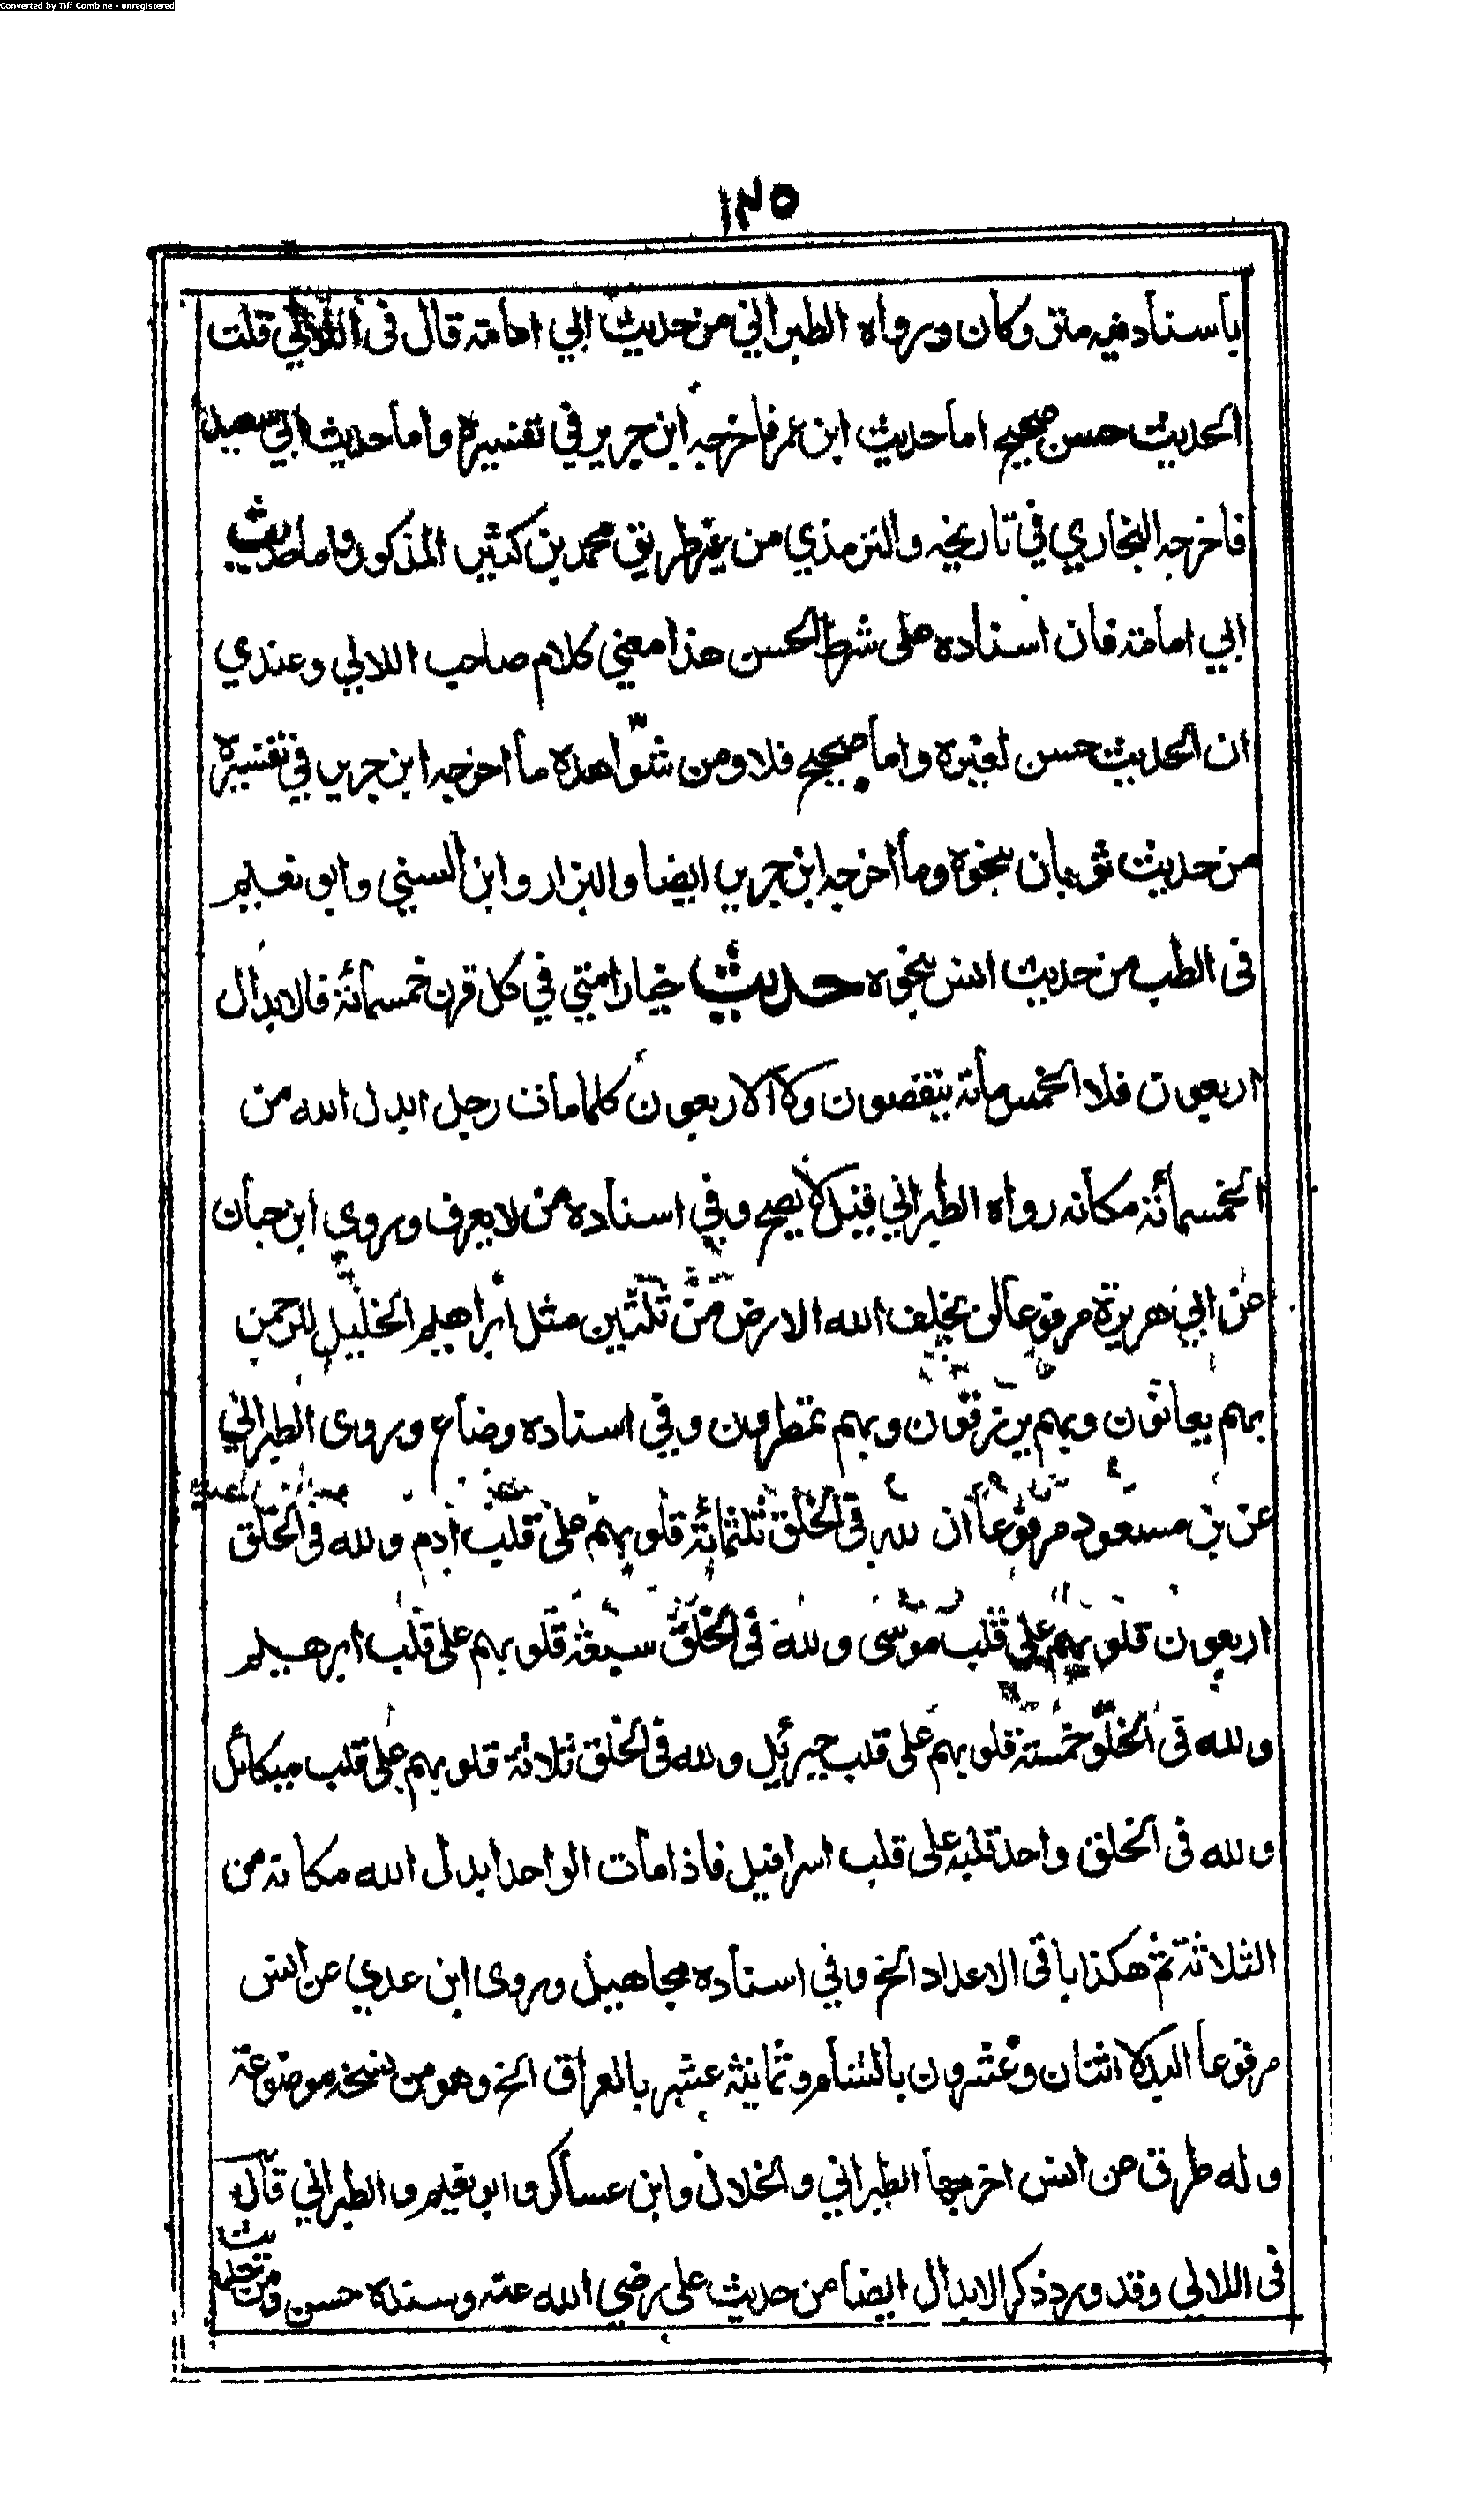 Converted by Tiff Combine - unregistered
١٢٥
باسناد فيه متروكان ورواه الطبراني من حديث ابي امامة قال في اللآلي قلت
الحديث حسن صحيح اما حديث ابن عمر فاخرجه ابن جرير في تفسيره واما حديث ابي سعيد
فاخرجه البخاري في تاريخه والترمذي من غير طريق محمد بن كثير المذكور واما حديث
ابي امامة فان اسناده على شرط الحسن هذا معني كلام صاحب اللالي وعندي
ان الحديث حسن لغيره واما صحيح فلا ومن شواهده ما اخرجه ابن جرير في تفسيره
من حديث ثوبان بنحوه وما اخرجه ابن جرير ايضا والبزار وابن السني وابو نعيم
في الطب من حديث انس بنحوه حديث خيار امتي في كل قرن خمسمائة فالابدال
اربعون فلا الخمس مائة ينقصون ولا الاربعون كلما مات رجل ابدل الله من
الخمسمائة مكانه رواه الطبراني قيل لا يصح وفي اسناده من لا يعرف وروي ابن حبان
عن ابي هريرة مرفوعا لن يخلف الله الارض من ثلثين مثل ابراهيم الخليل للرحمن
بهم يعاثون وبهم يرزقون وبهم يمطرون وفي اسناده وضاع وروى الطبراني
عن بن مسعود مرفوعا ان لله في الخلق ثلثمائة قلوبهم على قلب ادم ولله في الخلق
اربعون قلوبهم على قلب موسى ولله في الخلق سبعة قلوبهم على قلب ابرهيم
ولله في الخلق خمسة قلوبهم على قلب جبرئيل ولله في الخلق ثلاثة قلوبهم على قلب ميكائل
ولله في الخلق واحد قلبه على قلب اسرافيل فاذا مات الواحد ابدل الله مكانه من
الثلاثة ثم هكذا باقي الاعداد الخ وفي اسناده مجاهيل وروى ابن عدي عن انس
مرفوعا البدلا اثنان وعشرون بالشام وثمانية عشر بالعراق الخ وهو من نسخة موضوعة
وله طرق عن انس اخرجها الطبراني والخلال وابن عساكر وابو نعيم والطبراني قال
في اللالي وقد ورد ذكر الابدال ايضا من حديث علي رضي الله عنه وسنده حسن ومن حديث